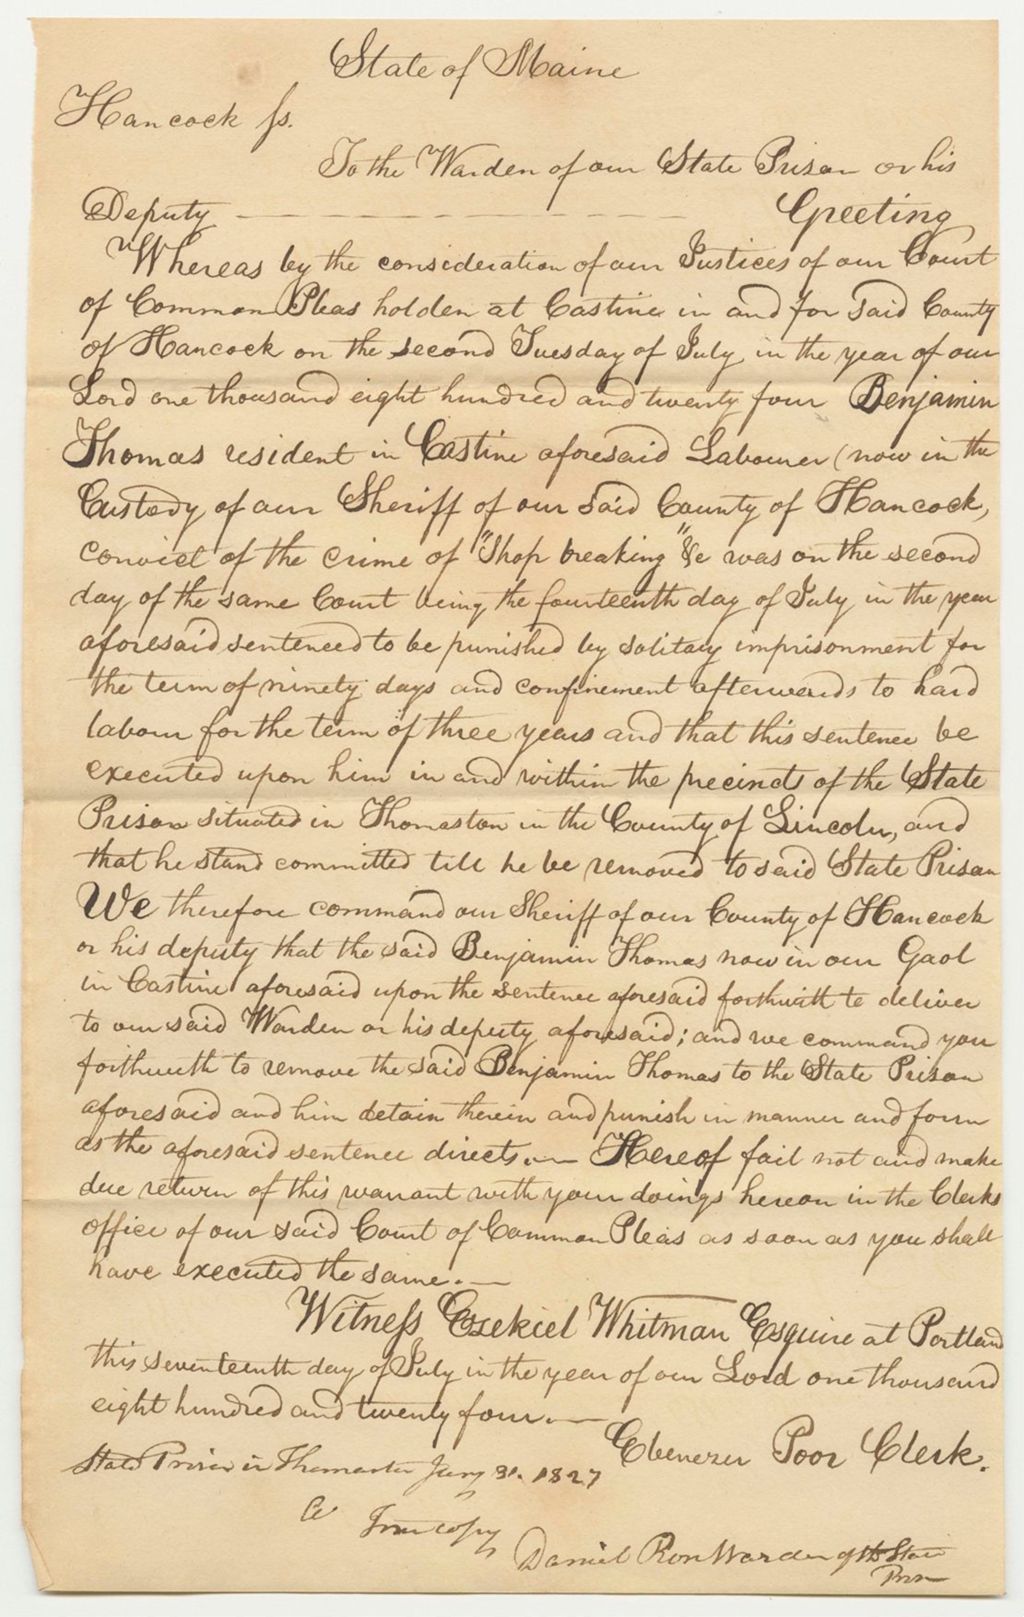 State of Maine
Hancock ſs.
To the Warden of our State Prison or his
Deputy — — — — — — — — — — Greeting
Whereas by the consideration of our Justices of our Court
of Common Pleas holden at Castine in and for said County
of Hancock on the second Tuesday of July in the year of our
Lord one thousand eight hundred and twenty four Benjamin
Thomas resident in Castine aforesaid Labourer (now in the
Custody of our Sheriff of our said County of Hancock,
convict of the crime of "Shop breaking" &c was on the second
day of the same Court being the fourteenth day of July in the year
aforesaid sentenced to be punished by solitary imprisonment for
the term of ninety days and confinement afterwards to hard
labour for the term of three years and that this sentence be
executed upon him in and within the precincts of the State
Prison situated in Thomaston in the County of Lincoln, and
that he stand committed till he be removed to said State Prison
We therefore command our Sheriff of our County of Hancock
or his deputy that the said Benjamin Thomas now in our Gaol
in Castine aforesaid upon the sentence aforesaid forthwith to deliver
to our said Warden or his deputy aforesaid; and we command you
forthwith to remove the said Benjamin Thomas to the State Prison
aforesaid and him detain therein and punish in manner and form
as the aforesaid sentence directs.— Hereof fail not and make
due return of this warrant with your doings hereon in the Clerks
office of our said Court of Common Pleas as soon as you shall
have executed the same.—
Witneſs Ezekiel Whitman Esquire at Portland
this seventeenth day of July in the year of our Lord one thousand
eight hundred and twenty four.—
Ebenezer Poor Clerk.
State Prison in Thomaston Jany 31. 1827
A True copy
Daniel Rose Warden of the State
Prison